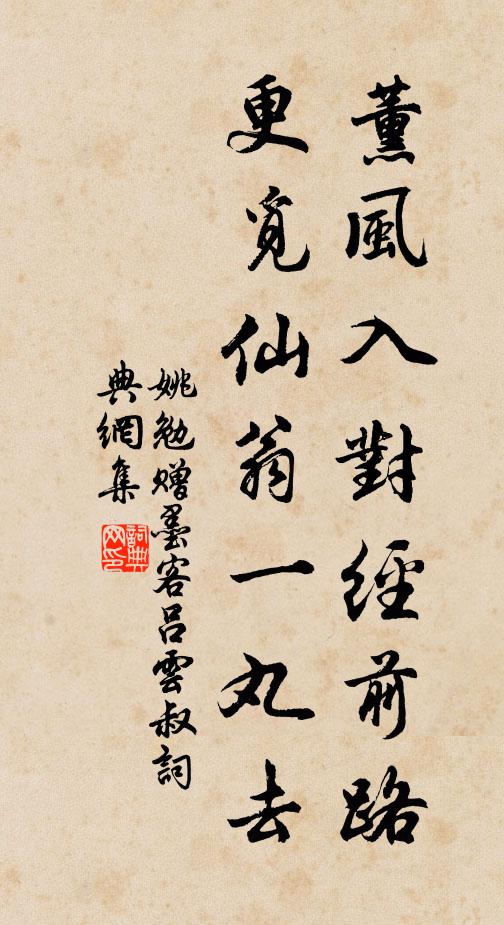 薰風入對經前路
更覓仙翁一丸去
姚勉贈墨客呂雲叔詞
典網集
詞典網印